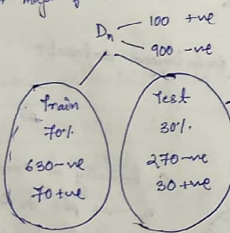 Dn
100 +ve
900 -ve
Train
70%
630-ve
70+ve
Test
30%.
270-ve
30+ve